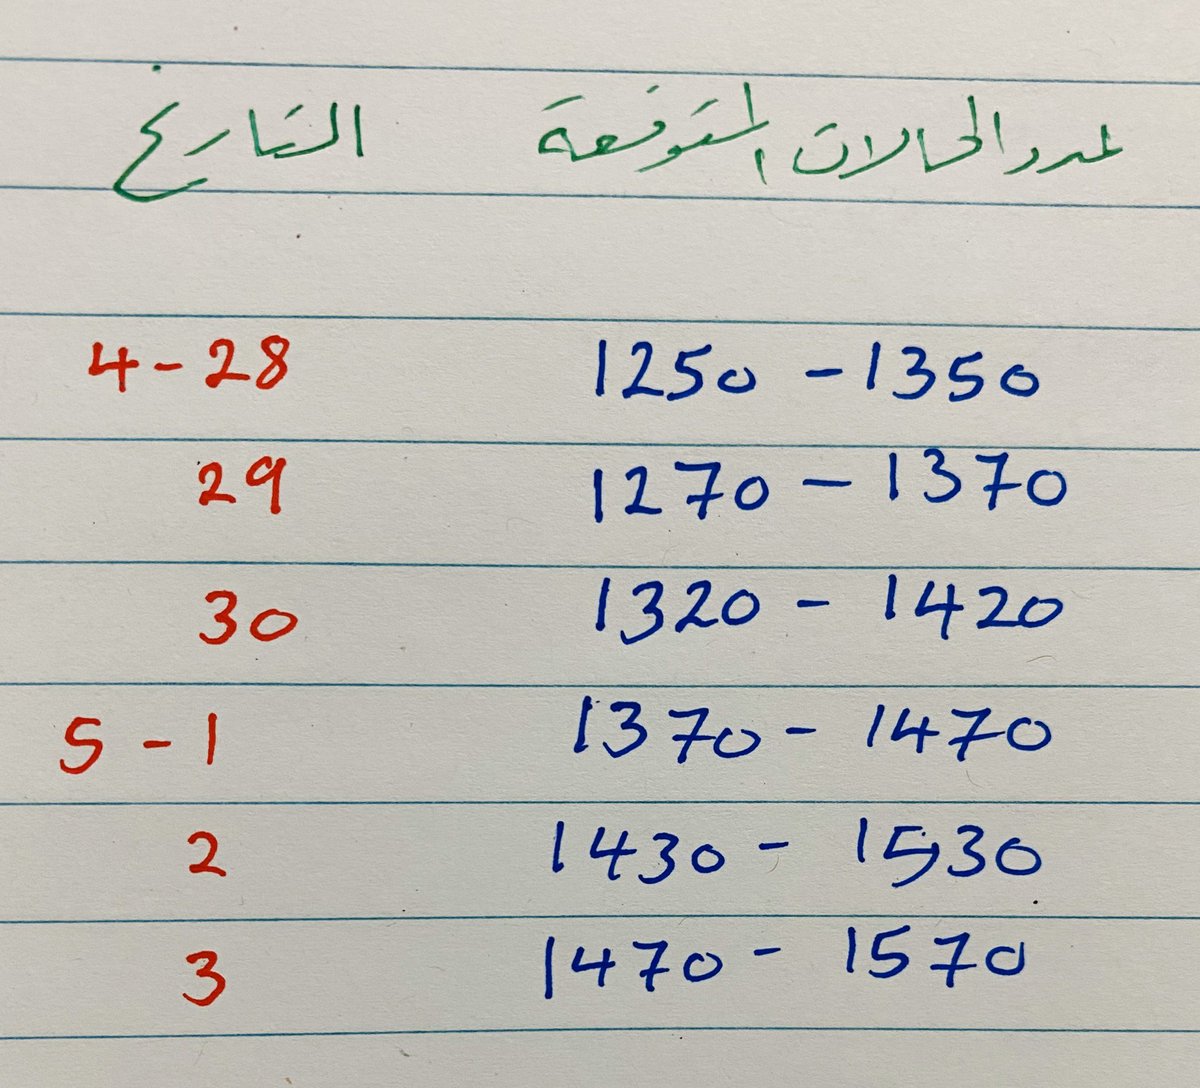 عدد الحالات المتوقعة التاريخ
1250 - 1350 4-28
1270 - 1370 29
1320 - 1420 30
1370 - 1470 5-1
1430 - 1530 2
1470 - 1570 3